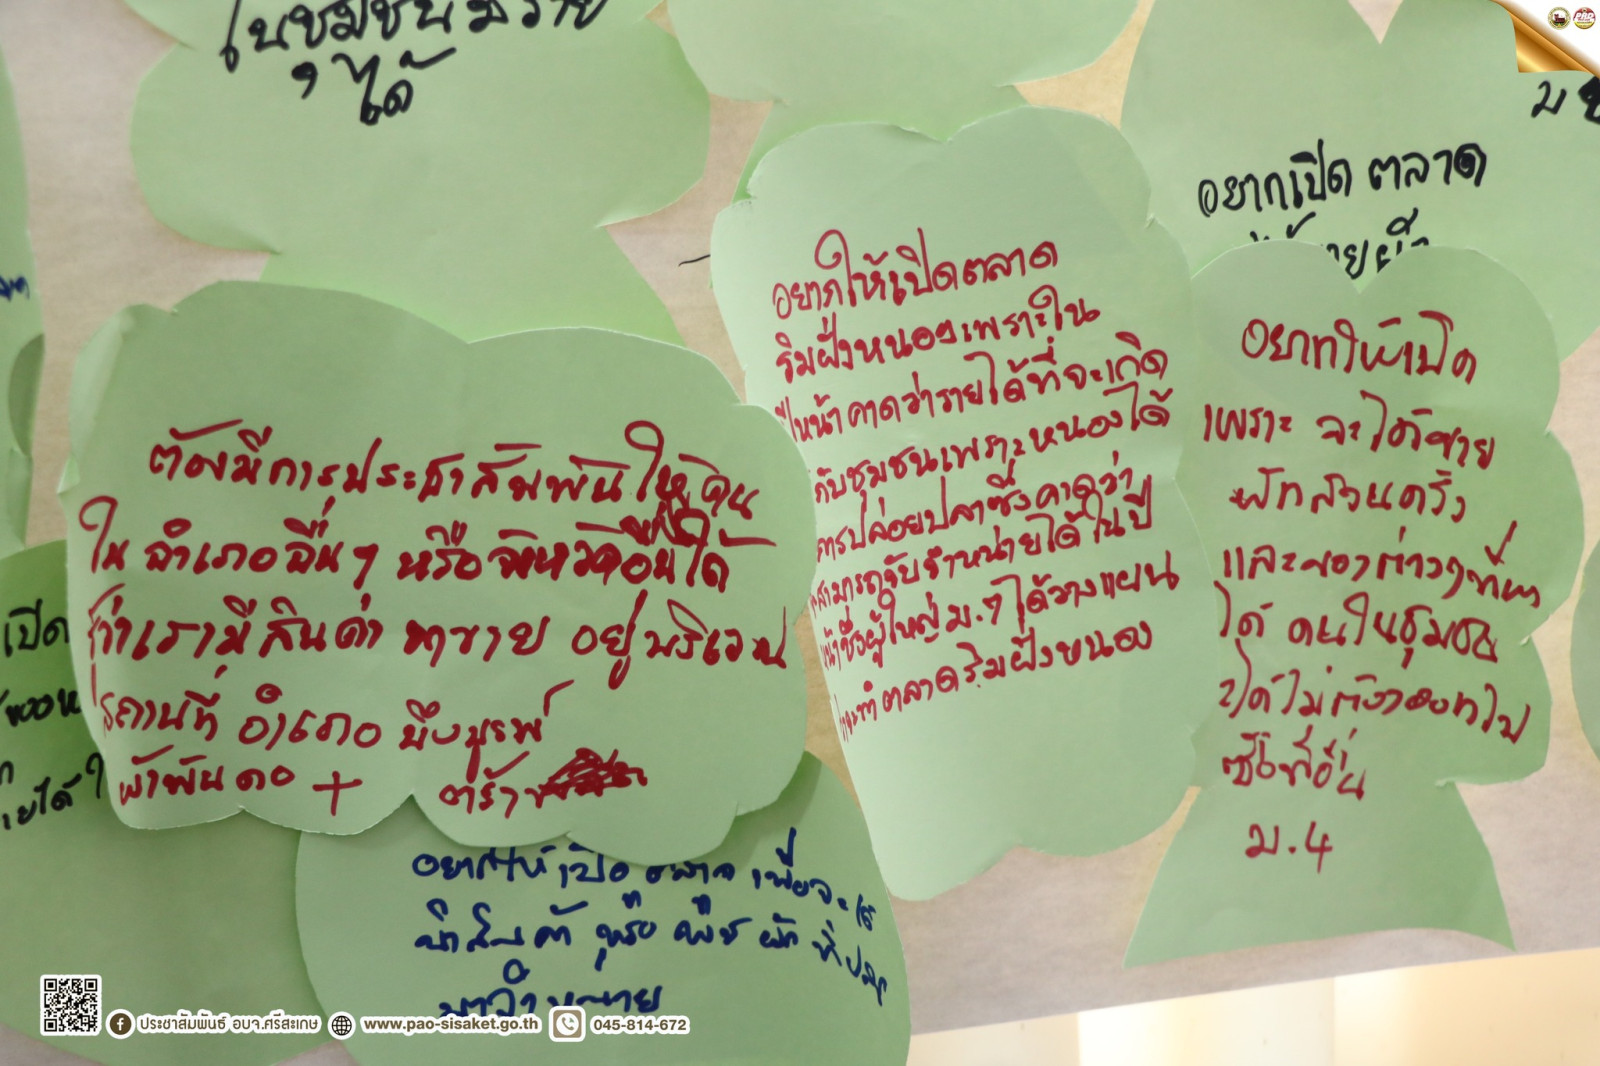 ในชุมชนมีราย
ได้
อยากเปิดตลาด
อยากให้เปิดตลาด
ริมฝั่งหนองเพราะใน
ปีหน้าคาดว่ารายได้ที่จะเกิด
กับชุมชนเพราะหนองได้
การปล่อยปลาซึ่งคาดว่า
สามารถจับจำหน่ายได้ในปี
หน้าซึ่งผู้ใหญ่ ม.7 ได้วางแผน
ตลาดริมฝั่งหนอง
อยากให้เปิด
เพราะ จะได้ขาย
ผักสวนครัว
และของต่างๆที่หา
ได้ คนในชุมชน
ได้ไม่ต้องออกไป
ซื้อที่อื่น
ม.4
ต้องมีการประชาสัมพันธ์ ให้คน
ใน อำเภออื่นๆ หรือจังหวัดอื่นได้
รู้ว่าเรามีสินค้า มาขาย อยู่บริเวณ
สถานที่ อำเภอ บึงบูรพ์
ผ้าพันคอ +
เปิด
อยากให้เปิด ตลาด เพื่อจะได้
นำสินค้า หรือ พืช ผัก
มาจำหน่าย
ประชาสัมพันธ์ อบจ.ศรีสะเกษ www.pao-sisaket.go.th 045-814-672